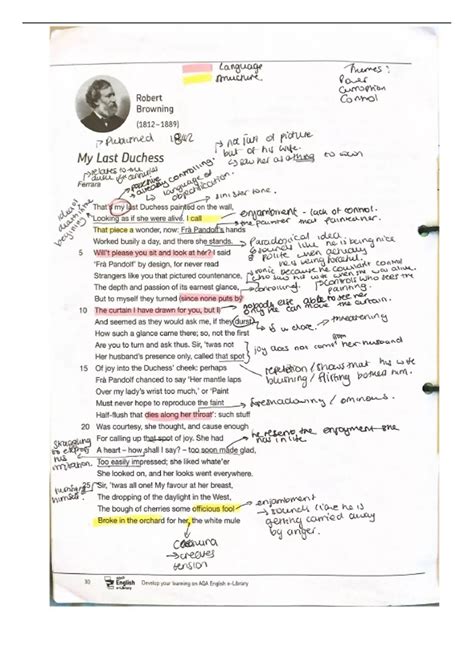 Language
structure
Themes:
Power
Corruption
Control
Robert
Browning
(1812–1889)
Published 1842
not just of picture
but of his wife.
saw her as a thing to own
My Last Duchess
relates to the
duke of
possessive
already controlling.
language of
objectification.
Ferrara
sinister tone.
That's my last Duchess painted on the wall,
Looking as if she were alive. I call
enjambment - lack of control.
the painter that painted her.
That piece a wonder, now: Frà Pandolf's hands
Worked busily a day, and there she stands.
Paradoxical idea.
sounds like he is being nice
& polite when actually
he is being forceful.
5 Will't please you sit and look at her? I said
'Frà Pandolf' by design, for never read
ironic because he couldn't control
his wife when she was alive.
Strangers like you that pictured countenance,
The depth and passion of its earnest glance,
controlling.
controls who sees the
painting.
But to myself they turned (since none puts by
nobody else able to see her
only he can move the curtain.
10 The curtain I have drawn for you, but I)
And seemed as they would ask me, if they durst,
threatening
How such a glance came there; so, not the first
Are you to turn and ask thus. Sir, 'twas not
joy does not come from her husband
Her husband's presence only, called that spot
15 Of joy into the Duchess' cheek: perhaps
repetition/shows that his wife
blushing / flirting bothered him.
Frà Pandolf chanced to say 'Her mantle laps
Over my lady's wrist too much,' or 'Paint
Must never hope to reproduce the faint
foreshadowing / ominous.
Half-flush that dies along her throat': such stuff
20 Was courtesy, she thought, and cause enough
he resents the enjoyment she
has in life
For calling up that spot of joy. She had
Struggling
to express
his
irritation.
A heart – how shall I say? – too soon made glad,
Too easily impressed; she liked whate'er
She looked on, and her looks went everywhere.
himself.
25 Sir, 'twas all one! My favour at her breast,
The dropping of the daylight in the West,
The bough of cherries some officious fool
enjambment
sounds like he is
getting carried away
by anger.
Broke in the orchard for her, the white mule
Caesura
creates
tension
30 AQA English e-Library Develop your learning on AQA English e-Library